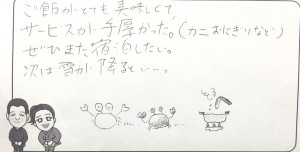 ご飯がとても美味しくて、
サービスが手厚かった。(カニおにぎりなど)
ぜひまた宿泊したい。
次は雪が降るといー。